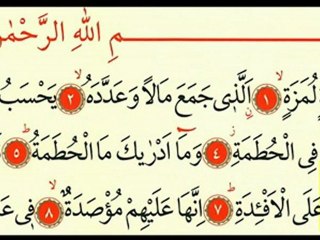 ـمِ اللهِ الرَّحْمٰـ
لُمَزَةٍۙ ﴿١﴾ اَلَّذ۪ى جَمَعَ مَالًا وَعَدَّدَهُۙ ﴿٢﴾ يَحْسَبُ
فِى الْحُطَمَةِۘ ﴿٤﴾ وَمَٓا اَدْرٰيكَ مَا الْحُطَمَةُۜ ﴿٥﴾
عَلَى الْاَفْـِٔدَةِۜ ﴿٧﴾ اِنَّهَا عَلَيْهِمْ مُؤْصَدَةٌۙ ﴿٨﴾ ف۪ى عَـ